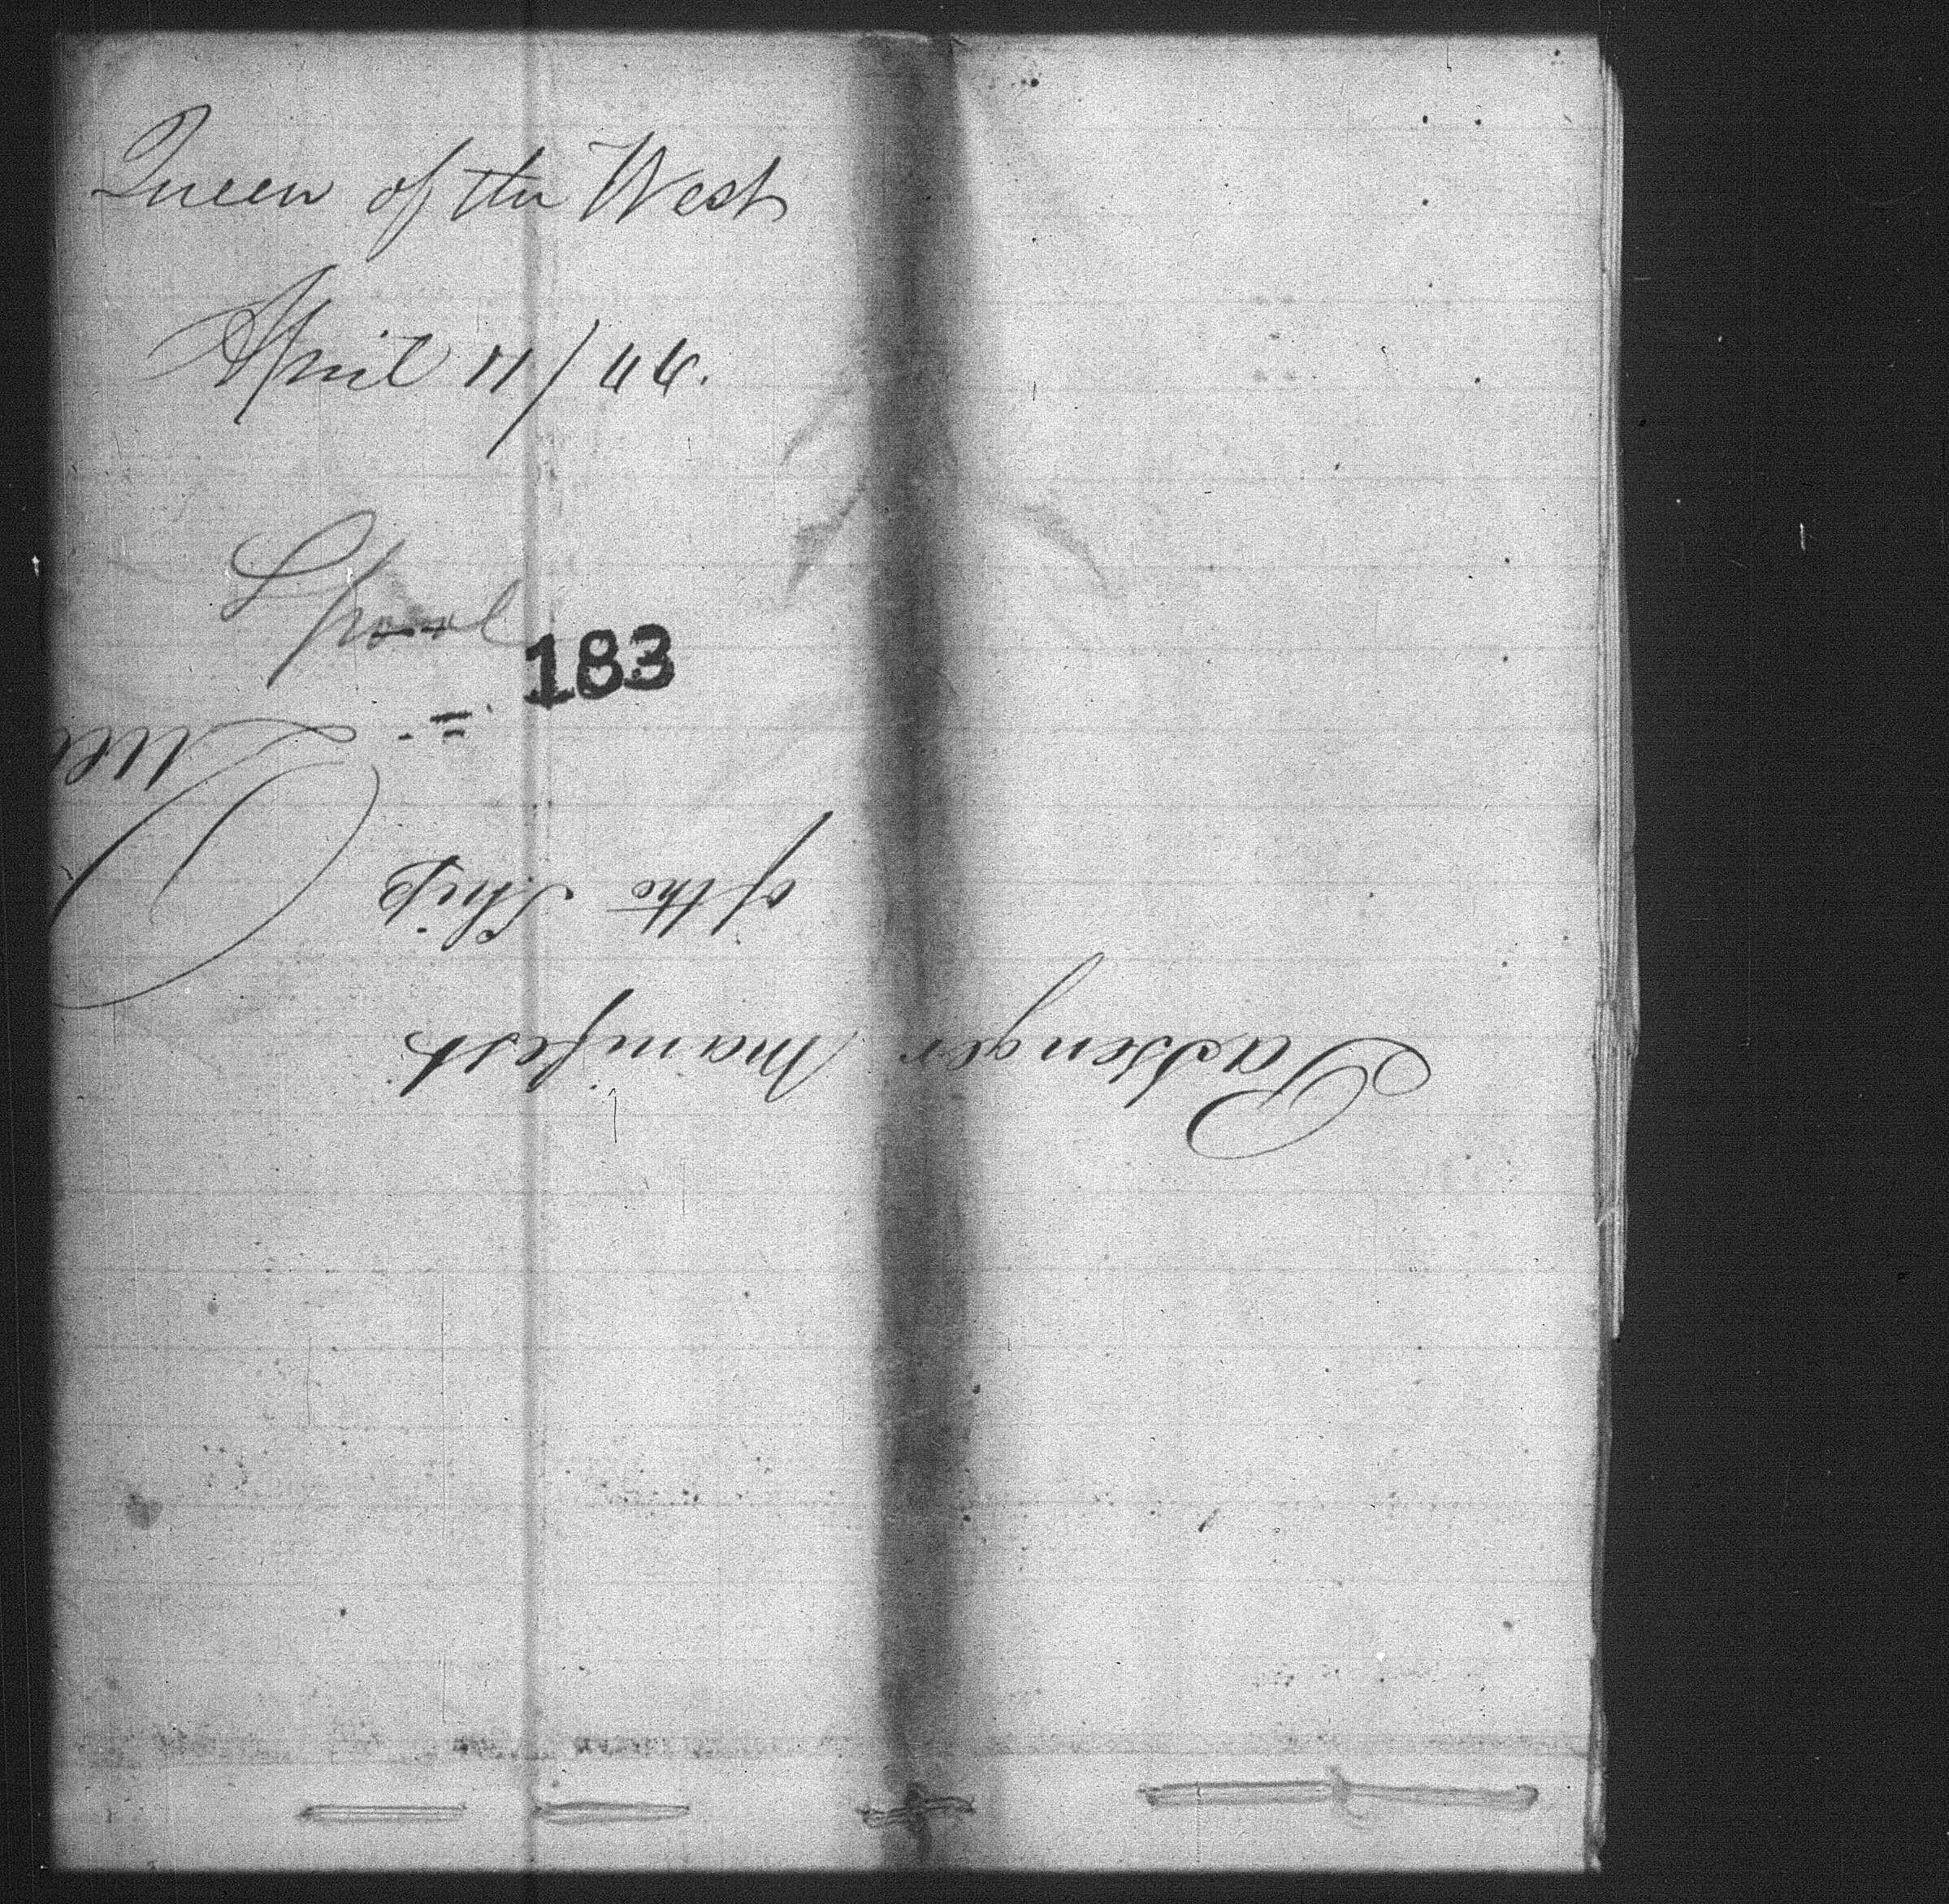 Queen of the West
April 11/46.
Lpool
183
Passenger Manifest
of the Ship
Quee